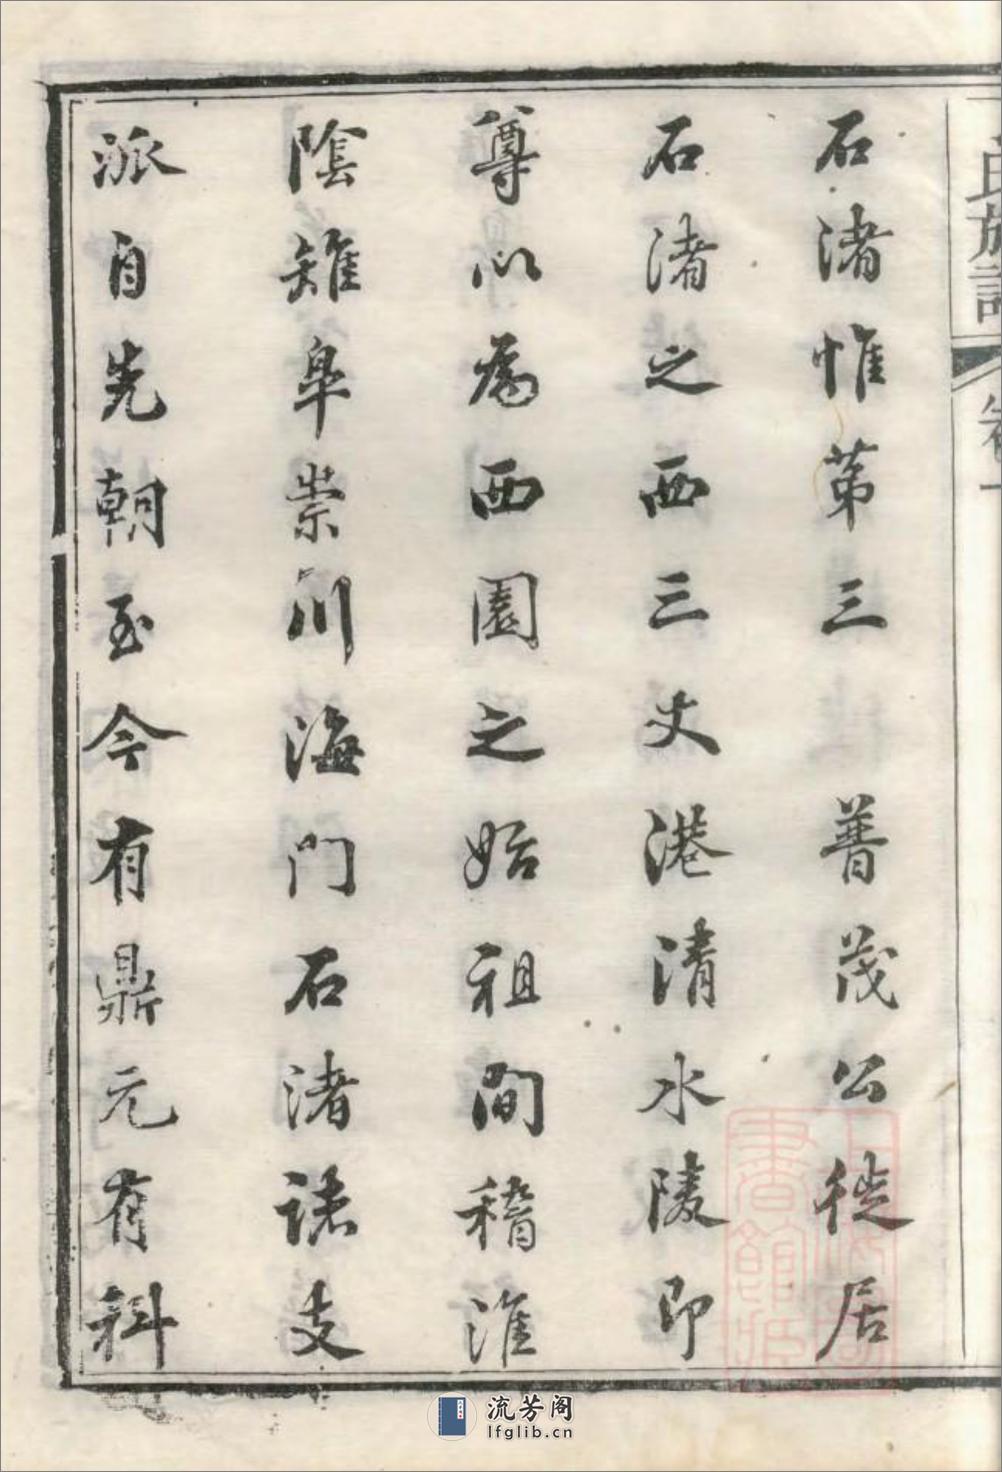 氏族譜 卷一
石渚惟第三 普茂公徙居
石渚之西三丈港清水陵即
尊以為西園之始祖間稽淮
陰雉皐崇川海門石渚諸支
派自先朝至今有鼎元有科
書館
流芳阁
lfglib.cn